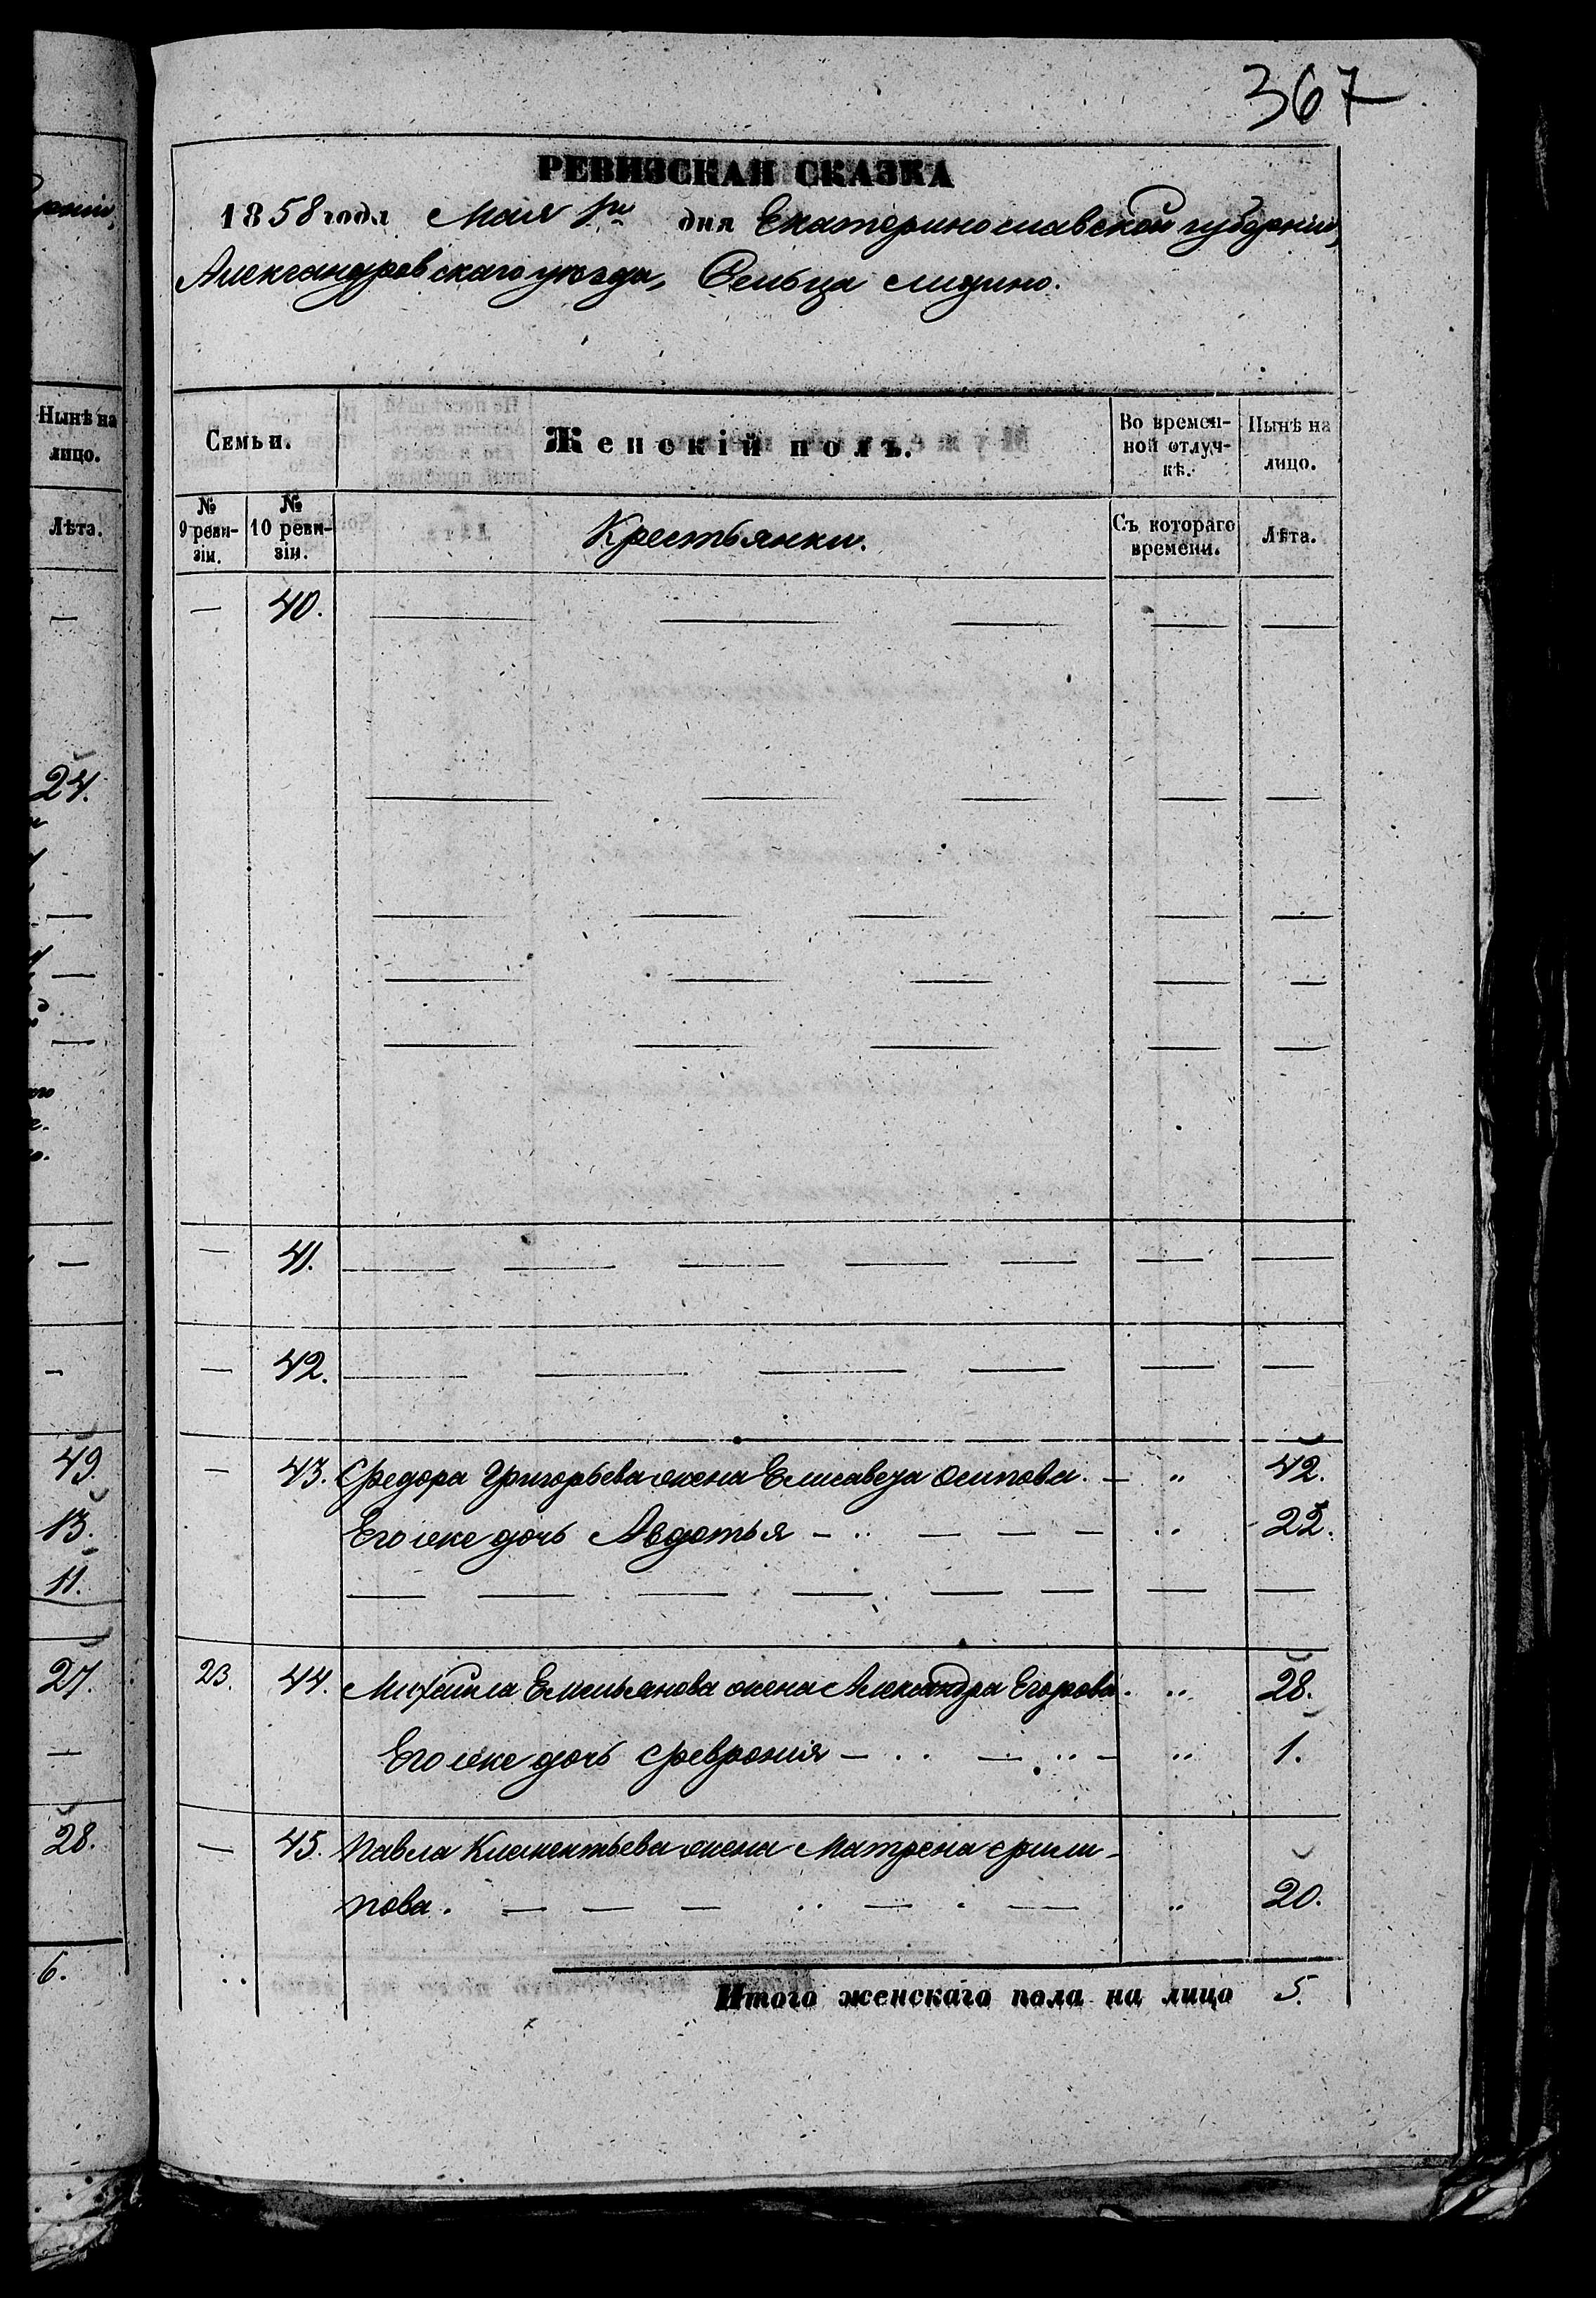 367
РЕВИЗСКАЯ СКАЗКА
1858 года Мая 1го дня Екатеринославской губерніи,
Александровскаго уезда, Сельца Лидино.
Нынѣ на
лицо.
Лѣта.
—
24.
—
—
—
—
—
49.
13.
11.
27.
—
28.
6.
Семьи.
Женскій полъ.
Во времен-
ной отлуч-
кѣ.
Нынѣ на
лицо.
№
9 реви-
зіи.
№
10 реви-
зіи.
Крестьянки.
Съ котораго
времени.
Лѣта.
— 40. — — — — —
— — — — —
— — — — —
— — — — —
— — — — —
— 41. — — — — — — —
— 42. — — — — —
— 43. Федора Григорьева жена Елисавета Осипова. — „ 42.
Его же дочь Авдотья — „ — — — „ 22.
— — — — — — — —
23. 44. Михайла Емельянова жена Александра Егорова. „ 28.
Его же дочь Феврония — „ — „ — „ 1.
— 45. Павла Клементьева жена Матрена Фили-
пова. — — — „ — „ — „ 20.
Итого женскаго пола на лицо 5.